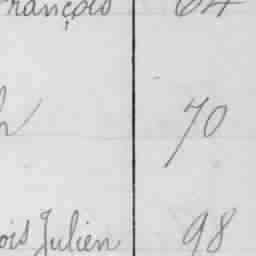 François 64
70
ois Julien 98